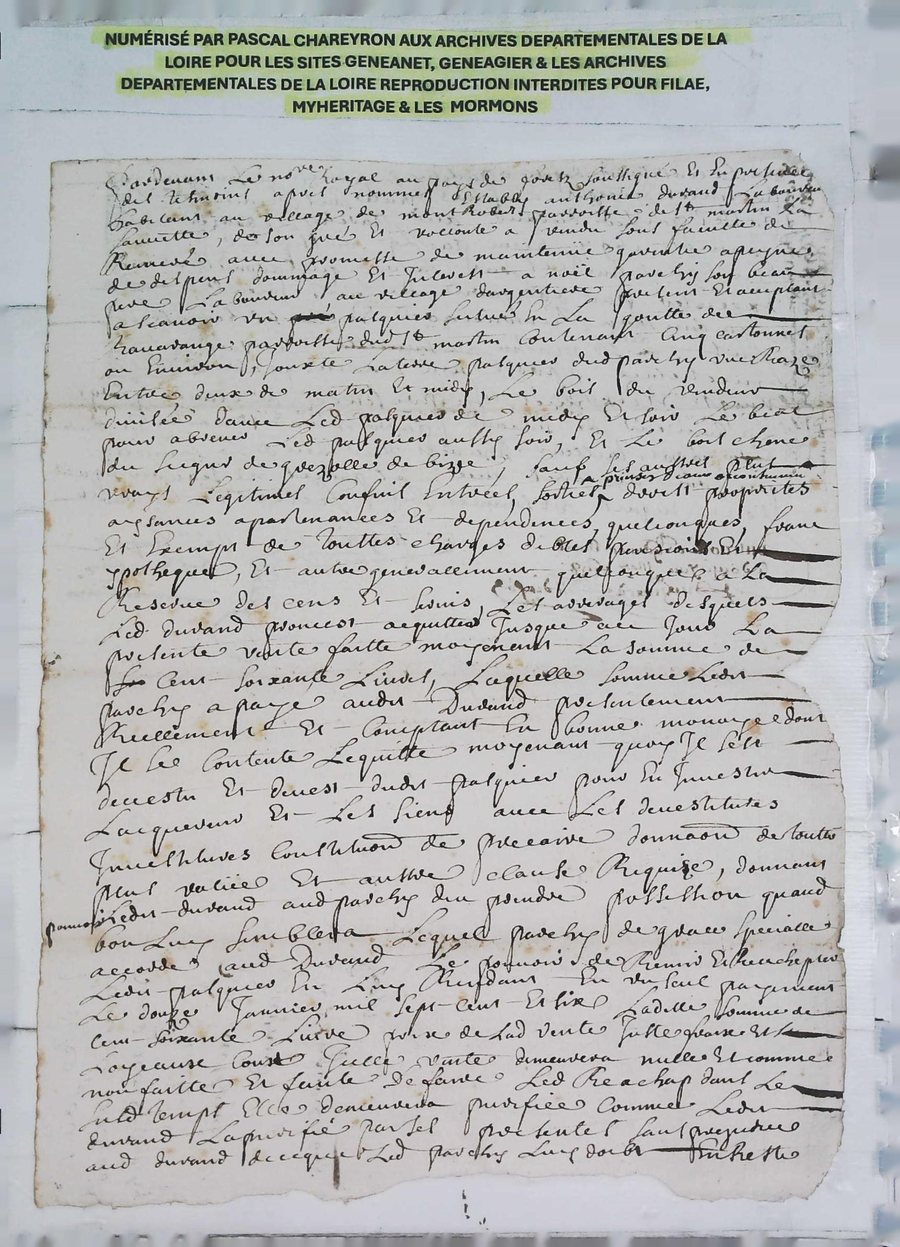 NUMÉRISÉ PAR PASCAL CHAREYRON AUX ARCHIVES DEPARTEMENTALES DE LA
LOIRE POUR LES SITES GENEANET, GENEAGIER & LES ARCHIVES
DEPARTEMENTALES DE LA LOIRE REPRODUCTION INTERDITES POUR FILAE,
MYHERITAGE & LES MORMONS
Pardevant Le no.re Royal au pays de forez soubsigné Et En presence
des tesmoins apres nommes Estably anthoine durand Laboureur
habitant au village de mont Robert parroisse de st martin La
sauveté, de son gré Et vollonté a vendu sous faculté de
Remeré avec promesse de maintenir garentir a peyne
de despens dommage Et Interest a noel parchy son beau
pere Laboureur au village dargentiere present Et aceptant
a scavoir un pasquier situé En La goutte de
parroisse dud st martin Contenant Cinq cartonnes
ou Environ, Jouxte La terre pasquier dud parchy une Raze
Entre deux de matin Et midy, Le bois du vendeur
divisée dance Led pasquier de midy Et soir Le beal
pour abreuer Led pasquier aussy soir Et Le bois chene
du sieur de de bize, sauf Les austres plus
vrays Legitimes Confins Entrées, sorties droits proprietes
aysances apartenances Et dependences quelconques, franc
Et Exempt de touttes charges debtes pensions Et
ypotheques, Et autre generallement quelconques a La
Reserve des cens Et servis, Les arrerages desquels
Led durand promest acquitter Jusque au Jour La
presente vente faitte moyenant La somme de
Cent soixante Livres, Laquelle somme Ledit
parchy a payé audit Durand presentement
Reellement Et Comptant En bonne monoye dont
Il se Contente Lequitte moyenant quoy Il sest
devestu Et devest dudit pasquier pour En Investir
Lacquereur Et Les siens avec Les devestitures
Investitures Constitution de precaire donnaon de toutte
plus vallue Et autre clause Requise, donnant
pouvoir Ledit durand aud parchy den prendre possession quand
bon Luy semblera Lequel parchy de grace specialle
accorde aud Durand Le pouvoir de Remir Et Reachepter
Ledit pasquier En Luy Rendant En un seul payement
Le douze Janvier mil sept cent Et six Laditte somme de
Cent soixante Livre prix de Lad vente Juste fraix Et
Loyeaux Cousts Icelle vente demeurera nulle Et comme
non faitte Et faute de faire Led Reachap dans Le
susd temps Elle demeurera purifiée comme Ledit
durand La purifié par ses presentes sans prejudice
aud durand de ce que Led parchy Luy doibt En Reste